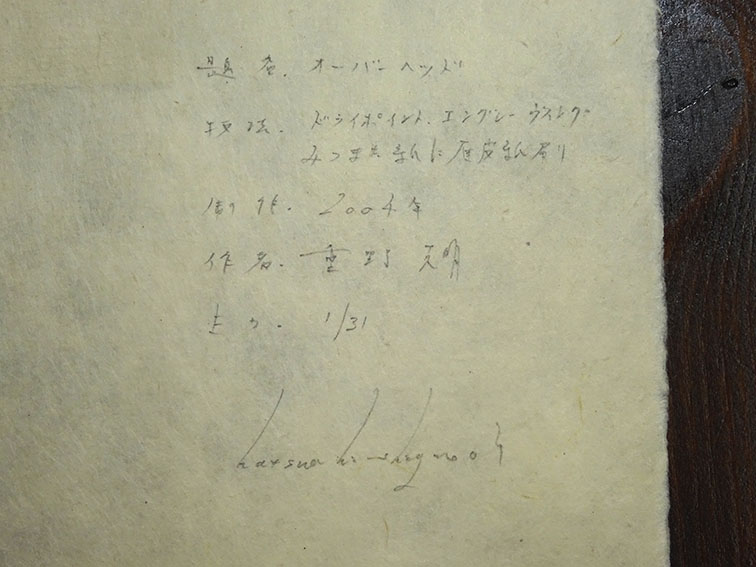 題名. オーバーヘッド
技法. ドライポイント、エングレーヴィング
みつまた紙に雁皮紙刷り
制作. 2004年
作者. 重野克明
1/31
katsuaki shigeno